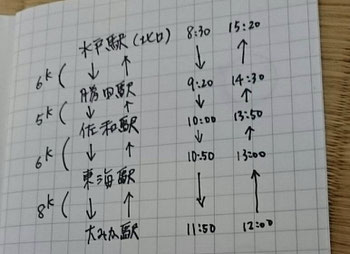 水戸駅(北口) 8:30 15:20
6k ( ↓ ↑ ↓ ↑
勝田駅 9:20 14:30
5k ( ↓ ↑ ↓ ↑
佐和駅 10:00 13:50
6k ( ↓ ↑ ↓ ↑
東海駅 10:50 13:00
8k ( ↓ ↑ ↓ ↑
大みか駅 11:50 12:00